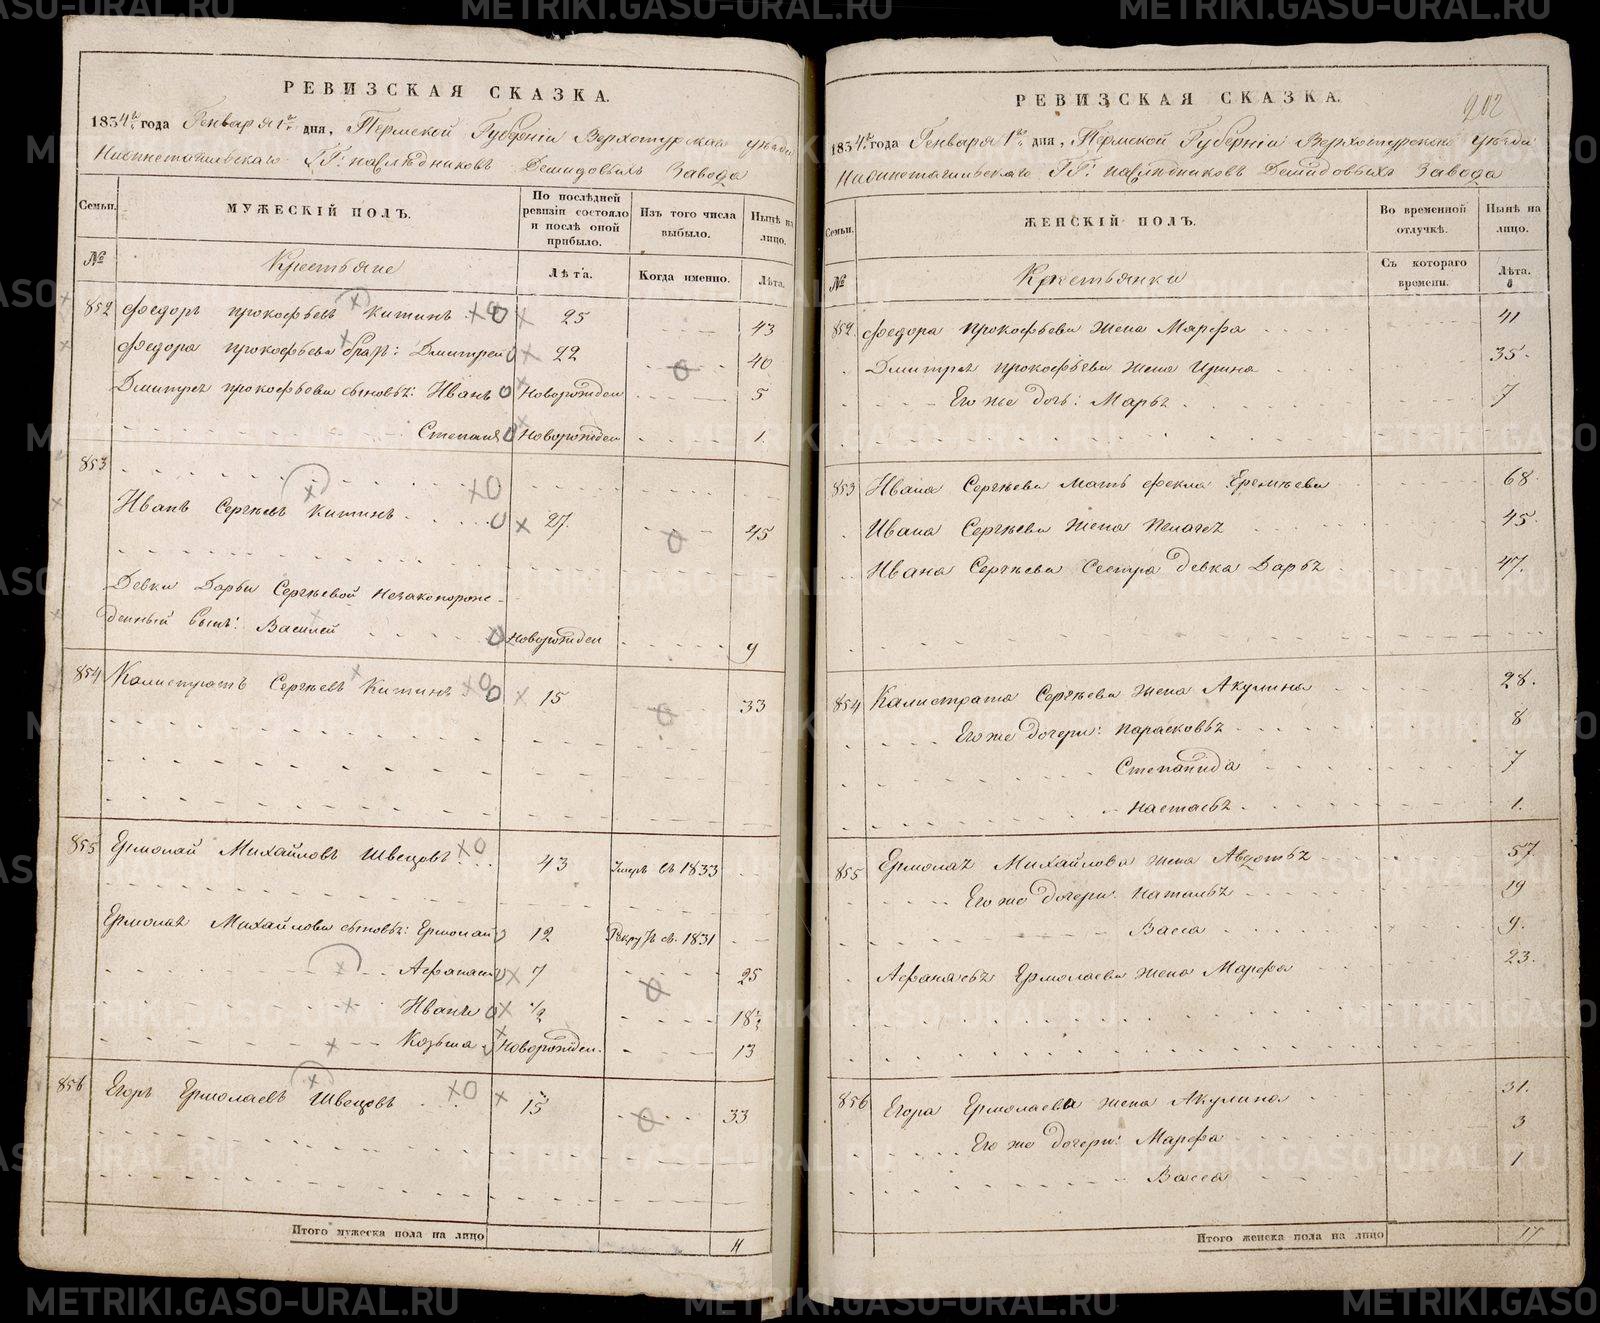 РЕВИЗСКАЯ СКАЗКА.
1834 года Генваря 1 дня, Пермской Губерніи Верхотурскаго уѣзда
Нижнетагильскаго ГГ: наслѣдниковъ Демидовыхъ Завода
Семьи. МУЖЕСКІЙ ПОЛЪ. По послѣдней ревизіи состояло и послѣ оной прибыло. Изъ того числа выбыло. Нынѣ на лицо.
№ Крестьяне Лѣта. Когда именно. Лѣта.
852 Федоръ Прокофьевъ Китинъ 25 43
Федора Прокофьева братъ: Дмитрей 22 40
Дмитрея Прокофьева сыновья: Иванъ Новорожден 5
Степанъ Новорожден 1
853
Иванъ Сергѣевъ Китинъ 27 45
Девки Дарьи Сергѣевой Незаконорож-
денный сынъ: Василей Новорожден 9
854 Калистратъ Сергѣевъ Китинъ 15 33
855 Ермолай Михайловъ Швецовъ 43 Умеръ въ 1833
Ермолая Михайлова сыновья: Ермолай 12 Рекрутъ въ 1831
Афанасей 7 25
Иванъ 1/2 18 1/2
Козьма Новорожден. 13
856 Егоръ Ермолаевъ Швецовъ 15 33
Итого мужеска пола на лицо 11
902
РЕВИЗСКАЯ СКАЗКА.
1834 года Генваря 1 дня, Пермской Губерніи Верхотурскаго уѣзда
Нижнетагильскаго ГГ: наслѣдниковъ Демидовыхъ Завода
Семьи. ЖЕНСКІЙ ПОЛЪ. Во временной отлучкѣ. Нынѣ на лицо.
№ Крестьянки Съ котораго времени. Лѣта.
852 Федора Прокофьева жена Марфа 41
Дмитрея Прокофьева жена Ирина 35
Его же дочь: Марья 7
853 Ивана Сергѣева мать Фекла Еремѣева 68
Ивана Сергѣева жена Пелагея 45
Ивана Сергѣева сестра девка Дарья 47
854 Калистрата Сергѣева жена Акулина 28
Его же дочери: Парасковья 8
Степанида 7
Настасья 1
855 Ермолая Михайлова жена Авдотья 57
Его же дочери: Наталья 19
Васса 9
Афанасья Ермолаева жена Марфа 23
856 Егора Ермолаева жена Акулина 31
Его же дочери: Марфа 3
Васса 1
Итого женска пола на лицо 17
METRIKI.GASO-URAL.RU